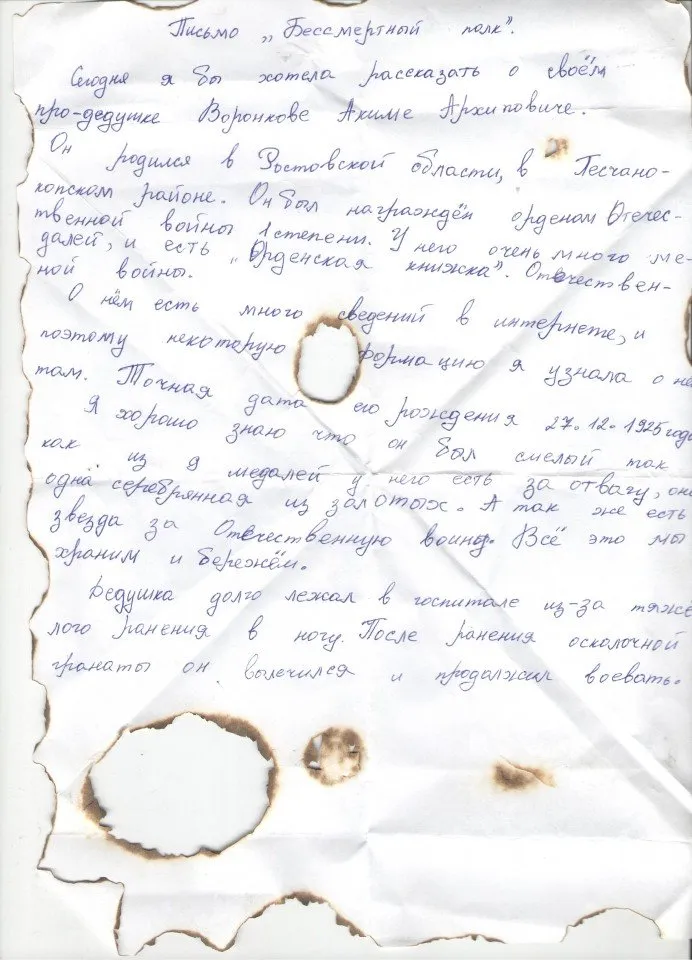 Письмо „Бессмертный полк".
Сегодня я бы хотела рассказать о своём
про-дедушке Воронкове Акиме Архиповиче.
Он родился в Ростовской области, в Песчано-
копском районе. Он был награждён орденом Отечес-
твенной войны 1 степени. У него очень много ме-
далей, и есть „Орденская книжка". Отечествен-
ной войны.
О нём есть много сведений в интернете, и
поэтому некоторую формацию я узнала о нём
там. Точная дата его рождения 27.12.1925 года
Я хорошо знаю что он был смелый так
как из 9 медалей у него есть за отвагу, она
одна серебрянная из залотых. А так же есть
звезда за Отечественную войну. Всё это мы
храним и бережём.
Дедушка долго лежал в госпитале из-за тяжё
лого ранения в ногу. После ранения осколочной
гранаты он вылечился и продолжил воевать.